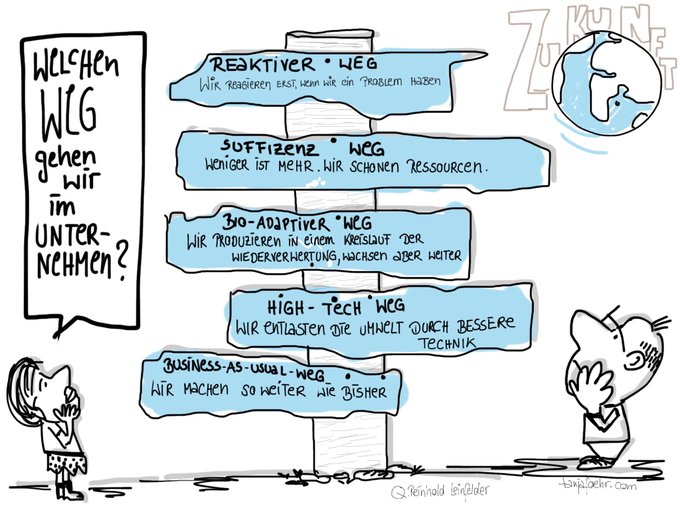 WELCHEN
WEG
gehen
wir
im
UNTER-
NEHMEN?
ZUKUNFT
REAKTIVER • WEG
WIR REAGIEREN ERST, WENN WIR EIN PROBLEM HABEN
SUFFIZENZ • WEG
WENIGER IST MEHR. WIR SCHONEN RESSOURCEN.
BIO-ADAPTIVER • WEG
WIR PRODUZIEREN IN EINEM KREISLAUF DER
WIEDERVERWERTUNG, WACHSEN ABER WEITER
HIGH-TECH • WEG
WIR ENTLASTEN DIE UMWELT DURCH BESSERE
TECHNIK
BUSINESS-AS-USUAL-WEG
WIR MACHEN SO WEITER WIE BISHER
Q. Reinhold Leinfelder
tanjafoehr.com